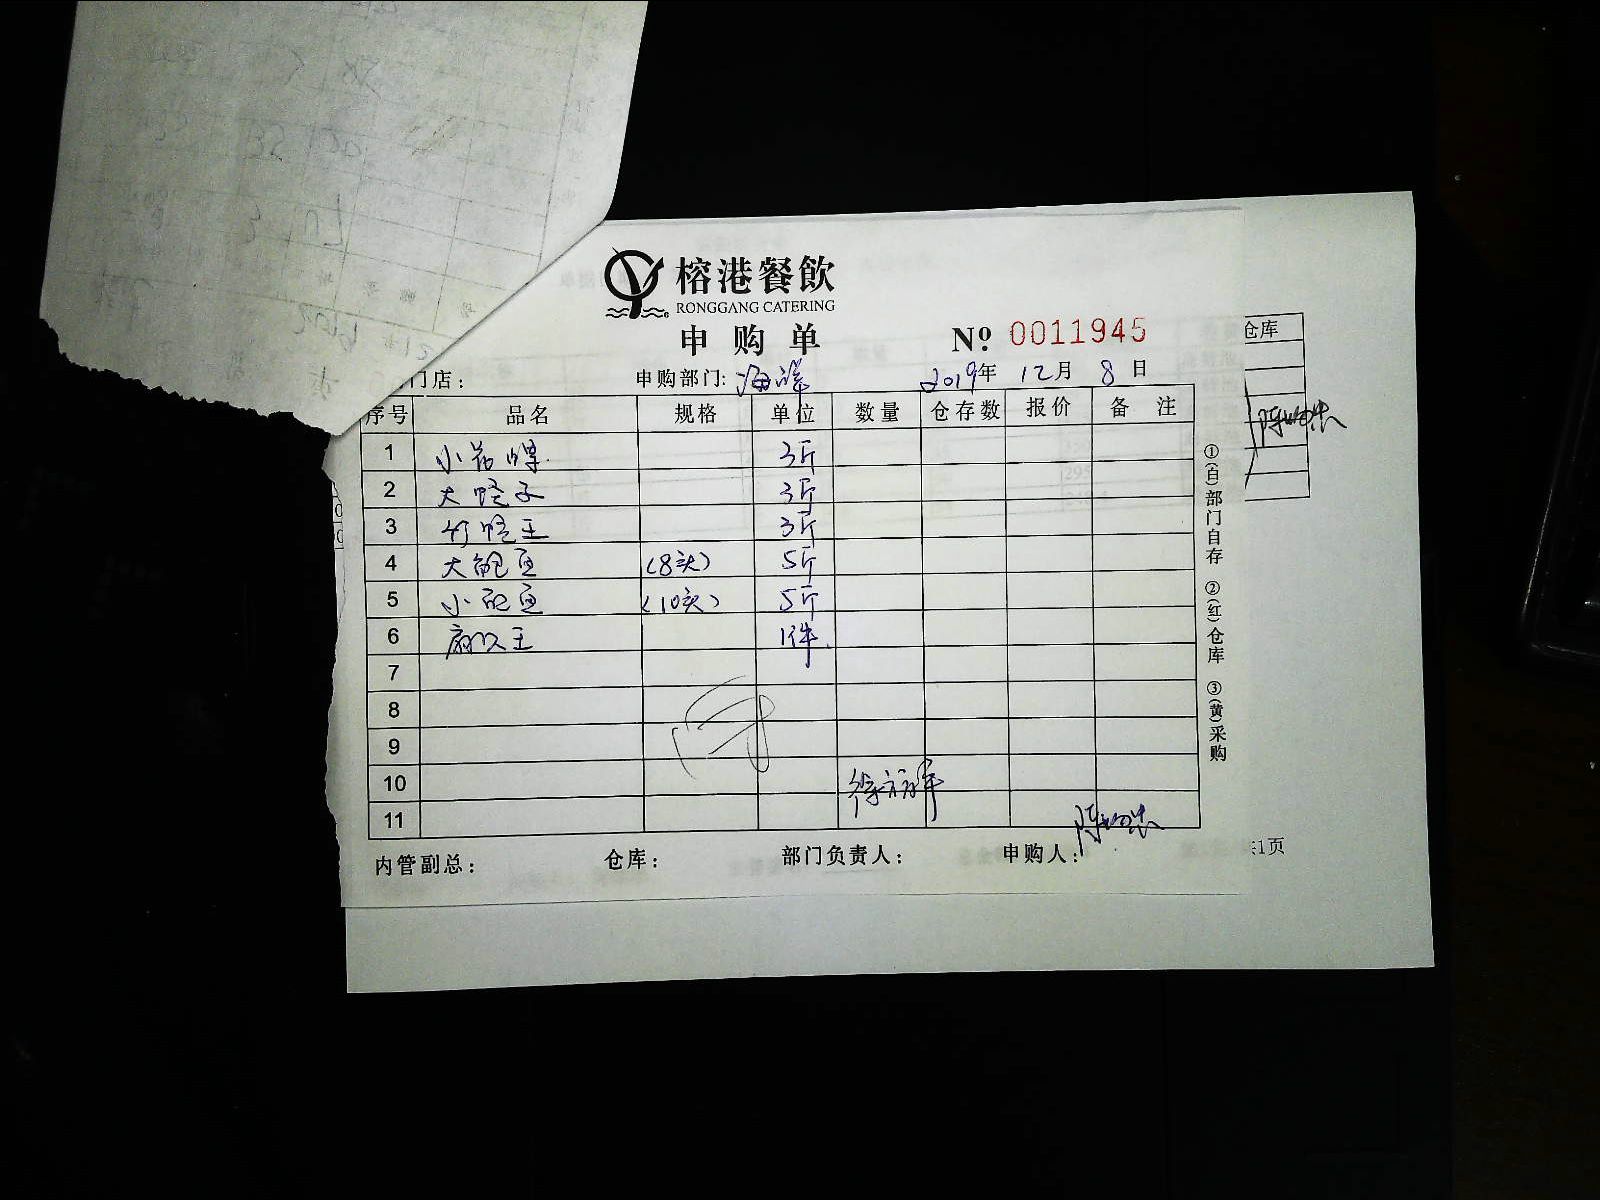 榕港餐飲
RONGGANG CATERING
申购单
№ 0011945
仓库
门店： 申购部门：海鲜 2019年 12月 8日
序号 品名 规格 单位 数量 仓存数 报价 备注
1 3斤
2 大蛏子 3斤
3 竹蛏王 3斤
4 大鲍鱼 (8头) 5斤
5 小鲍鱼 (10头) 5斤
6 1件
7
8
9
10
11
内管副总： 仓库： 部门负责人： 申购人：
①(白)部门自存 ②(红)仓库 ③(黄)采购
1页